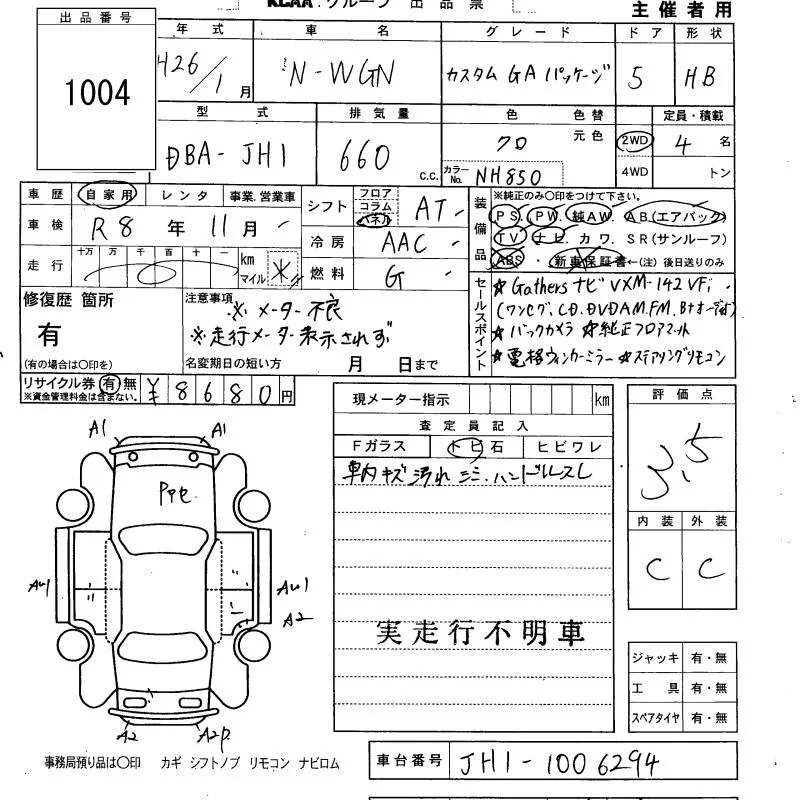 KCAA.グループ 出品票
主催者用
出品番号
1004
年式 車名 グレード ドア 形状
H26/1月 N-WGN カスタム GA パッケージ 5 HB
型式 排気量 色 色替 定員・積載
元色
DBA-JH1 660 c.c. クロ 2WD 4名
カラーNo. NH850 4WD トン
車歴 自家用 レンタ 事業.営業車
車検 R8年11月
走行 十万 万 千 百 十 一 km マイル *
シフト フロア コラム パネル AT
冷房 AAC
燃料 G
装備品
※純正のみ〇印をつけて下さい。
PS. PW. 純AW. AB(エアバック)
TV. ナビ. カワ. SR(サンルーフ)
ABS. 新車保証書←(注)後日送りのみ
修復歴 箇所
有
(有の場合は〇印を)
注意事項
※メーター不良
※走行メーター表示されず
名変期日の短い方 月 日まで
セールスポイント
★Gathersナビ VXM-142VFi
(ワンセグ, CD.DVD AM.FM. Btオーディオ)
★バックカメラ ★純正フロアマット
★電格ウィンカーミラー ★ステアリングリモコン
リサイクル券 有 無 ¥8680円
※資金管理料金は含まない。
現メーター指示 km
査定員記入
Fガラス トビ石 ヒビワレ
車内キズ 汚れ シミ.ハンドルスレ
実走行不明車
評価点
3.5
内装 外装
C C
ジャッキ 有・無
工具 有・無
スペアタイヤ 有・無
A1 A1
AU1 AU1
A2
A2 A2P
事務局預り品は〇印 カギ シフトノブ リモコン ナビロム
車台番号 JH1-1006294